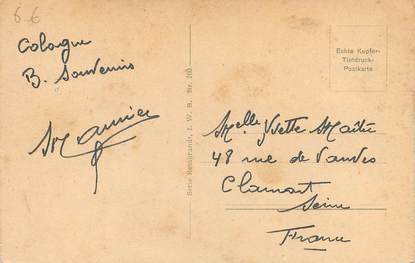 66
Cologne
B. Souvenirs
Maurice
Serie Rembrandt, I. W. B. Nr.
Echte Kupfer-
Tiefdruck-
Postkarte
Melle Yvette Maître
48 rue de Vanves
Clamart
Seine
France